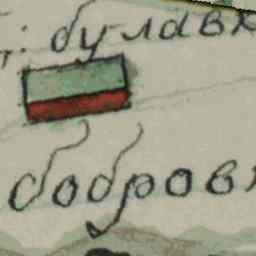 т. булавк
бобров